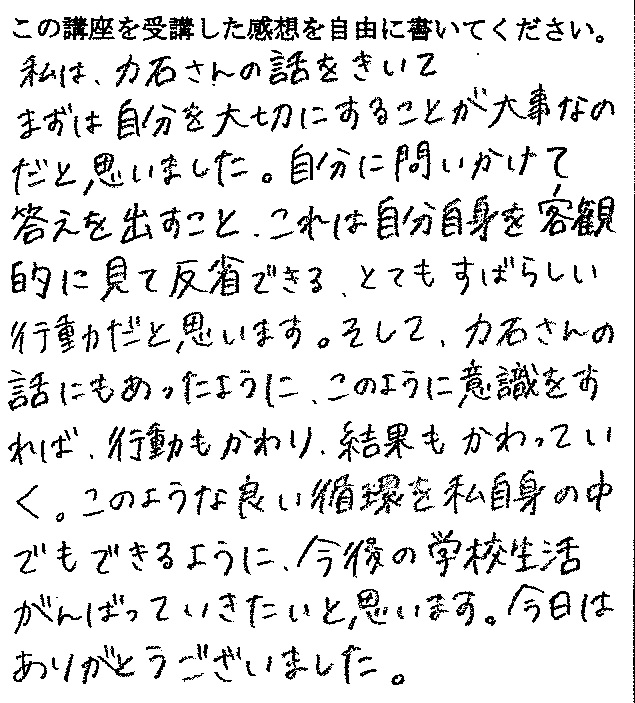 この講座を受講した感想を自由に書いてください。
私は、力石さんの話をきいて
まずは自分を大切にすることが大事なの
だと思いました。自分に問いかけて
答えを出すこと、これは自分自身を客観
的に見て反省できる、とてもすばらしい
行動だと思います。そして、力石さんの
話にもあったように、このように意識をす
れば、行動もかわり、結果もかわってい
く。このような良い循環を私自身の中
でもできるように、今後の学校生活
がんばっていきたいと思います。今日は
ありがとうございました。